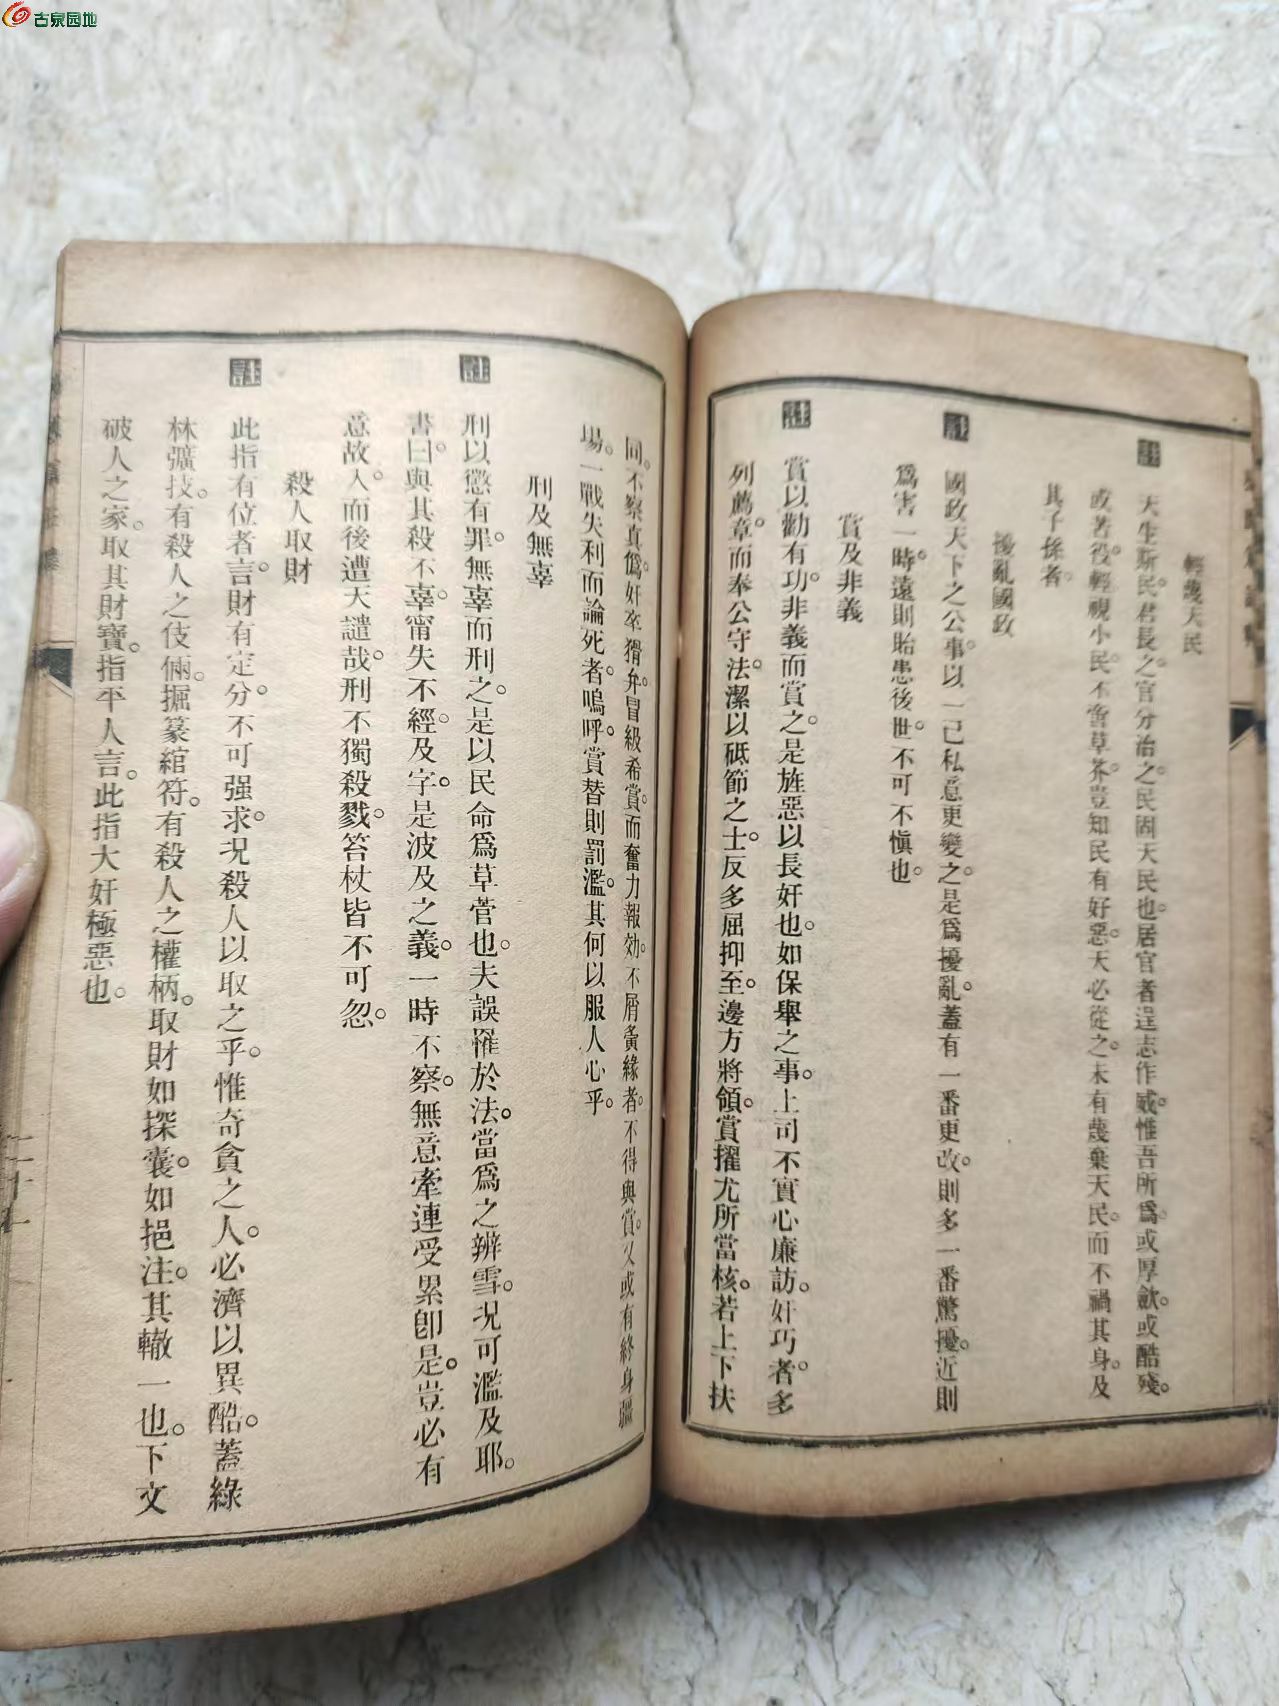 古泉园地
輕蔑天民
註 天生斯民。君長之官分治之。民固天民也。居官者逞志作威。惟吾所爲。或厚歛。或酷殘。
或苦役。輕視小民。不啻草芥。豈知民有好惡。天必從之。未有蔑棄天民。而不禍其身。及
其子孫者。
擾亂國政
註 國政天下之公事。以一己私意更變之。是爲擾亂。蓋有一番更改。則多一番驚擾。近則
爲害一時。遠則貽患後世。不可不愼也。
賞及非義
註 賞以勸有功。非義而賞之。是旌惡以長奸也。如保舉之事。上司不實心廉訪。奸巧者。多
列薦章。而奉公守法。潔以砥節之士。反多屈抑。至邊方將領。賞擢尤所當核。若上下扶
同。不察眞僞。奸卒猾弁。冒級希賞。而奮力報効。不屑夤緣者。不得與賞。又或有終身疆
場。一戰失利而論死者。嗚呼。賞替則罰濫。其何以服人心乎。
刑及無辜
註 刑以懲有罪。無辜而刑之。是以民命爲草菅也。夫誤罹於法。當爲之辨雪。况可濫及耶。
書曰。與其殺不辜。甯失不經。及字。是波及之義。一時不察。無意牽連受累卽是。豈必有
意故入。而後遭天譴哉。刑不獨殺戮。笞杖皆不可忽。
殺人取財
註 此指有位者言。財有定分。不可强求。况殺人以取之乎。惟奇貪之人。必濟以異酷。蓋綠
林彍技。有殺人之伎倆。掘篆綰符。有殺人之權柄。取財如探囊。如挹注。其轍一也。下文
破人之家。取其財寶。指平人言。此指大奸極惡也。